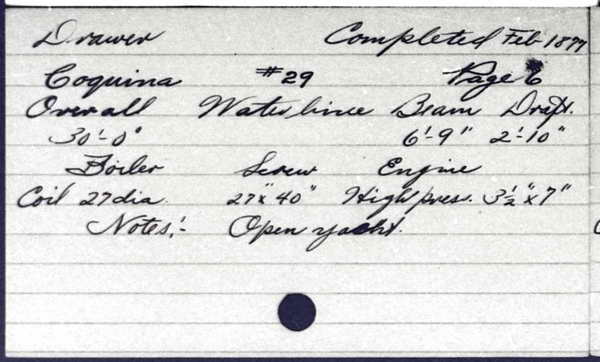 Drawer Completed Feb 1877
Coquina #29 Page 6
Overall Waterline Beam Draft.
30'-0" 6'-9" 2'-10"
Boiler Screw Engine
Coil 27 dia. 27" x 40" High pres. 3½" x 7"
Notes:- Open yacht.